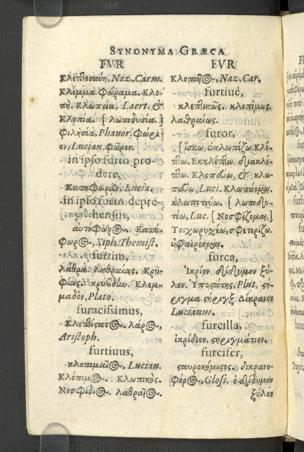 SYNONYMA GRÆCA
FVR
κλεπτοσύνη, Naz. Carm.
κλέμμα. Φώραμα. κλο-
πή. κλωπεία, Laert. &
κλοπία.
φιλησία, Phauor. φώριον,
Lucian. φῶρον.
in ipso furto pro
dere,
Καταφωρᾶν, Lucia.
in ipso furto depre-
hensus,
αὐτόφωρος. Κατά-
φωρος, Xiph. Themist.
furtim,
λάθρα. λαθραίως. Κρυ-
φίως. κρύβδην. Κλεμ-
μαδόν, Plato.
furacissimus,
Κλεπτίστατος.
Aristoph.
furtiuus,
κλοπιμαῖος, Lucian.
Κλόπιμος. Κλωπικός.
Νοσφίδιος. λαθραῖος.
FVR
κλοπῆος, Naz. Car.
furtiuè,
κλεπτικῶς. κλοπίμως.
λαθραίως.
furor,
κλέπτω. Κλοπεύω, &
Luci. Κλωπάομαι.
κλωπεύω.
Luc. [Νοσφίζομαι.]
Τοιχωρυχέω, σφετερίζω.
ὑφαιρέομαι.
furca,
Ἰκρίον. δίδυμον ξύ-
λον. Ὑποστάτης, Plut.
στήριγμα. στήριγξ. Δίκρανον
Lucianus.
furcilla,
ἰκρίδιον. στηριγμάτιον.
furcifer,
σταυροκόμιστης. δικρανο-
φόρος, Gloss. ὁ δίδυμον
ξύλον